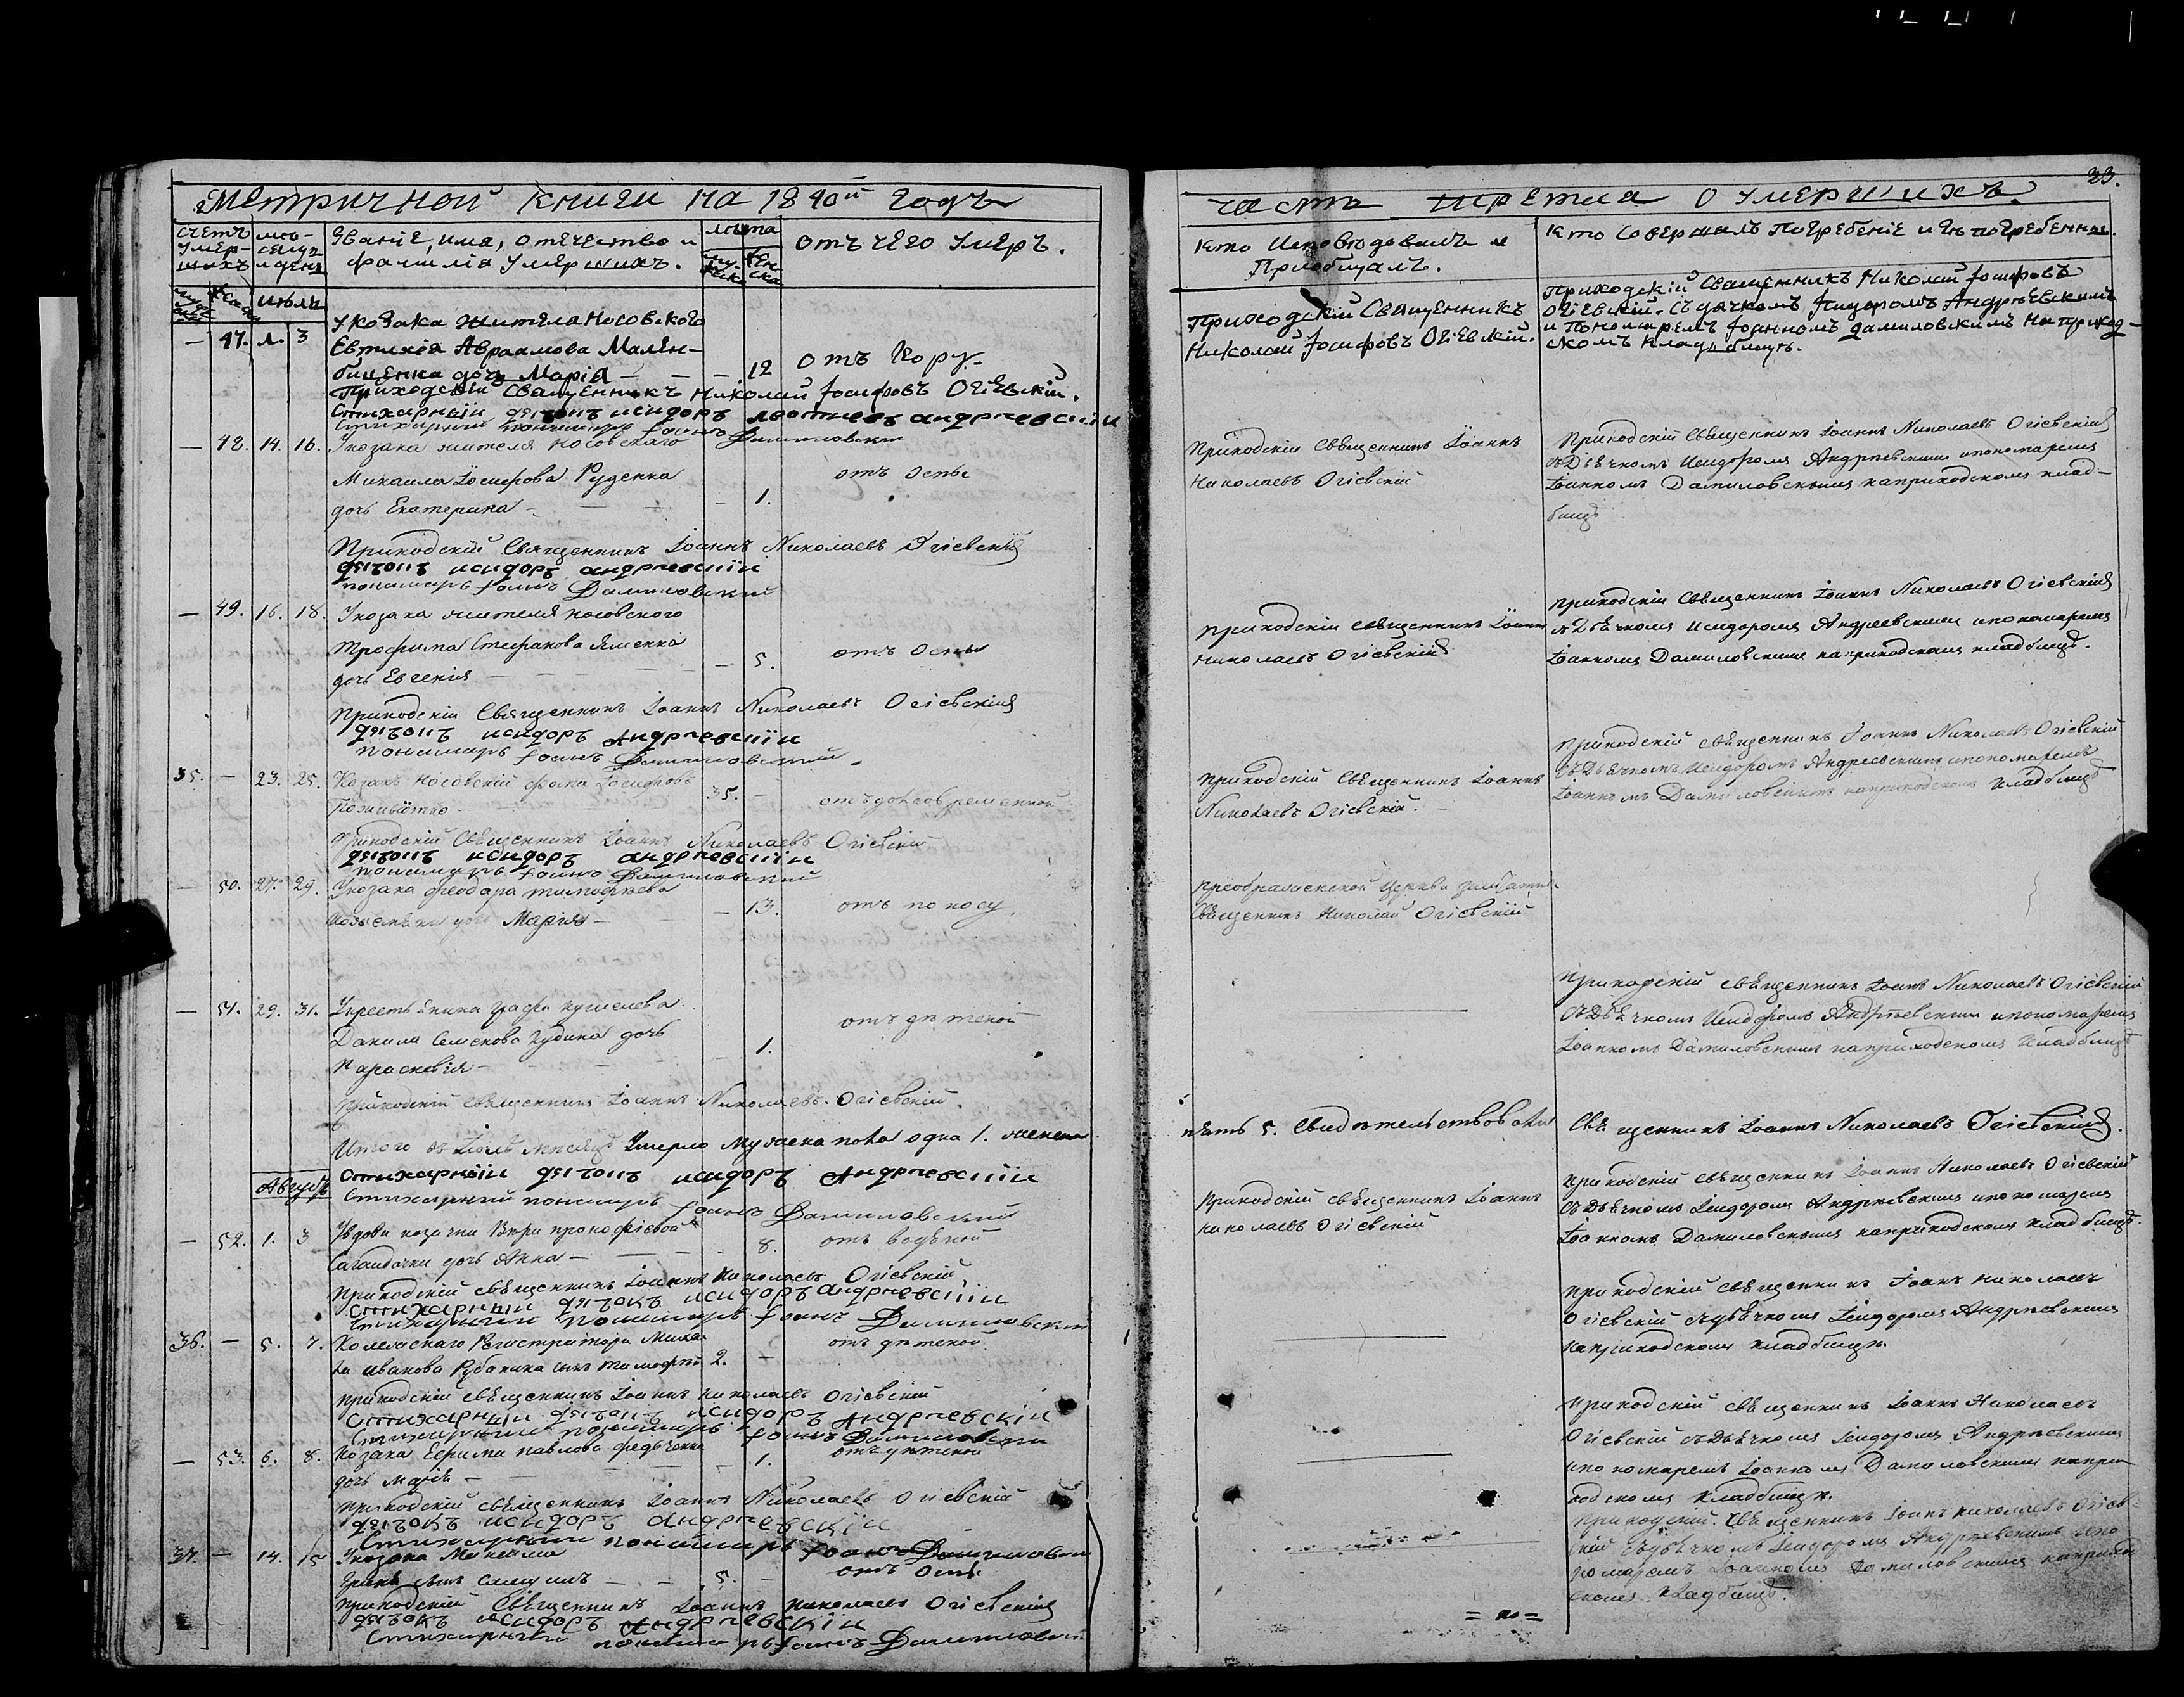 Метричной книги на 1840й годъ
Счетъ умер-
шихъ
мѣ-
сяцъ
и день
Званіе, имя, отечество и
фамилія умершихъ.
лѣта
му-
жеска
жен-
ска
отъ чего умеръ.
июль
У козака жителя Носовского
— 47. 1. 3
Евтихія Авраамова Мален-
дочь Марія — — 12 отъ кору.
Приходскій Священникъ Николай Іосифовъ Огіевскій.
Стихарный дячокъ исидоръ андрѣевскій
Стихарный пономарь Іоаннъ Даниловскій
— 48. 14. 16. У козака жителя носовскаго
Михаила Іосифова Руденка отъ оспы
дочь Екатерина — — 1.
Приходскій Священникъ Іоаннъ Николаевъ Огіевскій
дячокъ исидоръ андрѣевскій
пономарь Іоаннъ Даниловскій
— 49. 16. 18. У козака жителя носовского
Трофима Стефанова Яменка отъ оспы
дочь Евгенія — — 5.
Приходскій Священникъ Іоаннъ Николаевъ Огіевскій
дячокъ исидоръ Андрѣевскій
пономарь Іоаннъ Даниловскій
35. — 23. 25. Козакъ носовскій фома Іосифовъ
35. —
Приходскій Священникъ Іоаннъ Николаевъ Огіевскій
дячокъ исидоръ андрѣевскій
пономарь Іоаннъ Даниловскій
— 50. 27. 29. У козака феодора тимофѣева
дочь Марія — — 13. отъ поносу
— 51. 29. 31. У крестьянина графа кушелева
Данила Семенова Кудина дочь отъ дѣтской
Параскевія — — 1.
Приходскій Священникъ Іоаннъ Николаевъ Огіевскій.
Итого въ Іюлѣ мѣсяцѣ умерло мужеска пола одна 1. женска
Стихарный дячокъ исидоръ Андрѣевскій
Августъ
Стихарный пономарь Іоаннъ Даниловскій
— 52. 1. 3 У вдовы козачки Вѣры прокофіевой
дочь Анна — — 8. отъ водяной
Приходскій священникъ Іоаннъ Николаевъ Огіевскій
стихарный дячокъ исидоръ андрѣевскій
Стихарный пономарь Іоаннъ Даниловскій
36. — 5. 7. Колежскаго Регистратора Миха-
ла Иванова Рубанина сынъ тимофей 2. — отъ дѣтской
Приходскій священникъ Іоаннъ Николаевъ Огіевскій
стихарный дячокъ исидоръ Андрѣевскій
Стихарный пономарь Іоаннъ Даниловскій
— 53. 6. 8. Козака Ефима павлова федченка
дочь марія — — 1. отъ дѣтской
Приходскій священникъ Іоаннъ Николаевъ Огіевскій
дячокъ исидоръ андрѣевскій
Стихарный пономарь Іоаннъ Даниловскій
37. — 14. 15 У козака
сынъ — 5. — отъ оспы
Приходскій Священникъ Іоаннъ Николаевъ Огіевскій
дячокъ исидоръ Андрѣевскій
Стихарный пономарь Іоаннъ Даниловскій
23.
часть третия о умершихъ.
кто Исповѣдовалъ и
Приобщалъ.
кто Совершалъ Погребеніе и гдѣ погребенны.
Приходскій Священникъ
Николай Іосифовъ Огіевскій.
Приходскій Священникъ Николай Іосифовъ
Огіевскій. Съ дячкомъ Исидоромъ Андрѣевскимъ
и Пономаремъ Іоанномъ даниловскимъ На приход-
скомъ кладбищѣ.
Приходскій Священникъ Іоаннъ
Николаевъ Огіевскій
Приходскій Священникъ Іоаннъ Николаевъ Огіевскій
съ Дьячкомъ Исидоромъ Андрѣевскимъ ипономаремъ
Іоанномъ Даниловскимъ наприходскомъ клад-
бищѣ
Приходскій священникъ Іоаннъ
Николаевъ Огіевскій
Приходскій Священникъ Іоаннъ Николаевъ Огіевскій
съ Дьячкомъ Исидоромъ Андреевскимъ ипономаремъ
Іоанномъ Даниловскимъ наприходскомъ кладбищѣ.
Приходскій Священникъ Іоаннъ
Николаевъ Огіевскій.
Приходскій священникъ Іоаннъ Николаевъ Огіевскій
съ Дьячкомъ Исидоромъ Андреевскимъ ипономаремъ
Іоанномъ Даниловскимъ наприходскомъ Кладбищѣ
преображенской церкви
Священникъ Николай Огіевскій
Приходскій священникъ Іоаннъ Николаевъ Огіевскій
съ Дьячкомъ Исидоромъ Андрѣевскимъ ипономаремъ
Іоанномъ Даниловскимъ наприходскомъ Кладбищѣ
пять 5. Свидѣтельствовали Священникъ Іоаннъ Николаевъ Огіевскій.
Приходскій священникъ Іоаннъ
николаевъ Огіевскій
Приходскій священникъ Іоаннъ Николаевъ Огіевскій
съ Дьячкомъ Ісидоромъ Андрѣевскимъ ипономаремъ
Іоанномъ Даниловскимъ наприходскомъ кладбищѣ.
Приходскій священникъ Іоаннъ Николаевъ
Огіевскій съдьячкомъ Ісидоромъ Андрѣевскимъ
наприходскомъ кладбищѣ.
Приходскій священникъ Іоаннъ Николаевъ
Огіевскій съдьячкомъ Ісидоромъ Андрѣевскимъ
ипономаремъ Іоанномъ Даниловскимъ напри-
ходскомъ кладбищѣ.
Приходскій. Священникъ Іоаннъ николаевъ Огіев-
скій съдьячкомъ Ісидоромъ Андрѣевскимъ ипо-
номаремъ Іоанномъ Даниловскимъ наприход-
скомъ кладбищѣ.